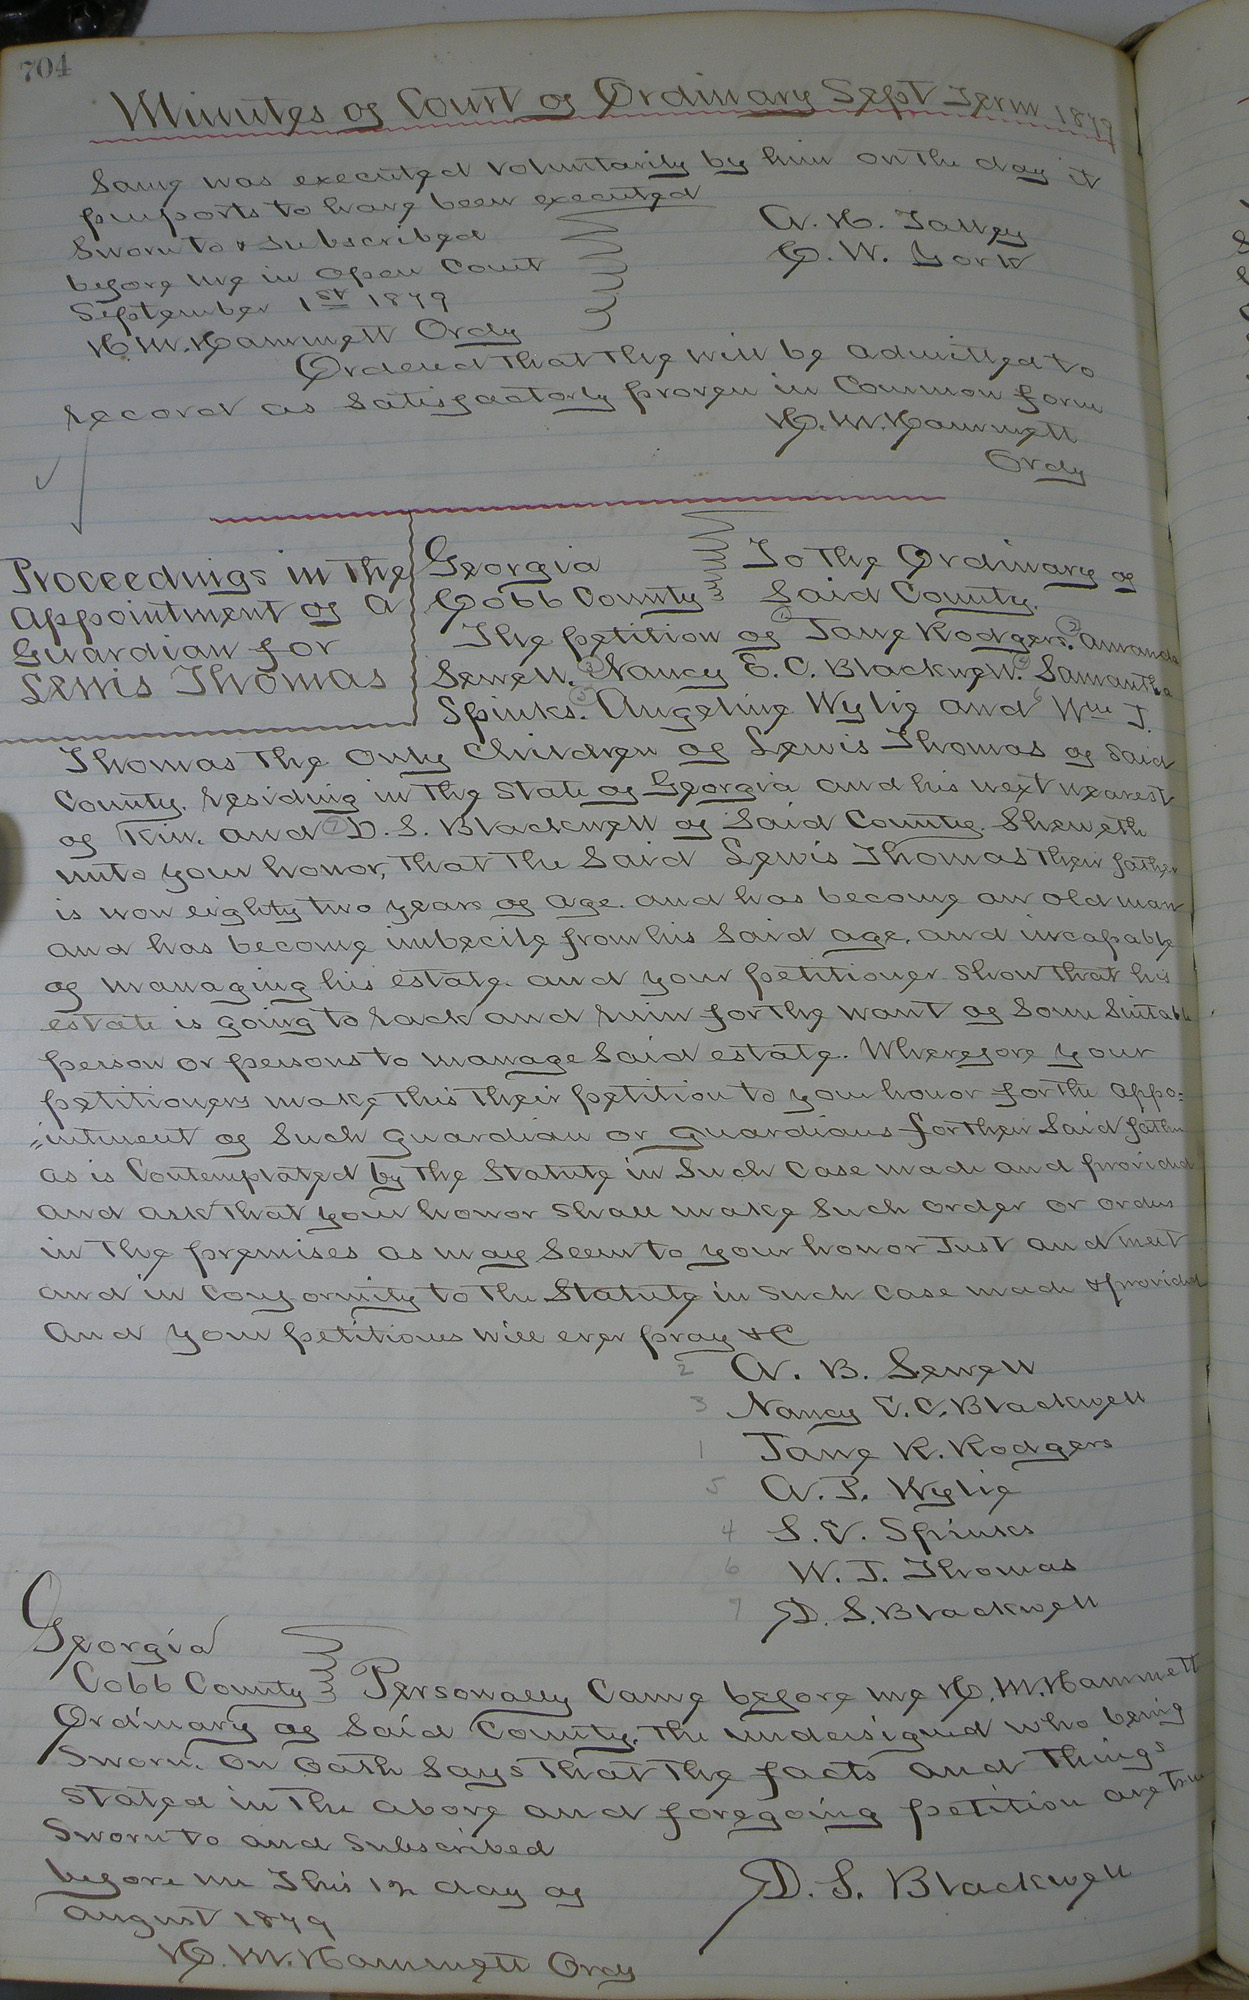 704
Minutes of Court of Ordinary Sept Term 1879
Same was executed voluntarily by him on the day it
purports to have been executed
Sworn to & Subscribed
before me in open Court
September 1st 1879
H. M. Hammett Ordy
A. H. Talley
C. W. York
Ordered that the will be admitted to
record as satisfactorly proven in Common form
H. M. Hammett
Ordy
Proceedings in the
Appointment of a
Guardian for
Lewis Thomas
Georgia
Cobb County
To the Ordinary of
Said County.
The petition of 1 Jane Rodgers. 2 Amanda
Sewell. 3 Nancy E. C. Blackwell. 4 Samantha
Spinks. 5 Angeline Wylie and 6 Wm J.
Thomas the only children of Lewis Thomas of said
County. residing in the State of Georgia and his next nearest
of Kin. and 7 D. S. Blackwell of Said County. Sheweth
unto your honor, that the Said Lewis Thomas their father
is now eighty two years of age. and has become an old man
and has become imbecile from his said age. and incapable
of managing his estate. and your petitioner show that his
estate is going to rack and ruin for the want of som suitable
person or persons to manage said estate. Wherefore your
petitioners make this their petition to your honor for the appo=
=intment of such guardian or guardians for their said father
as is Contemplated by the Statute in such case made and provided
and ask that your honor shall make such order or orders
in the premises as may seem to your honor Just and meet
and in conformity to the Statute in such case made & provided
And your petitious will ever pray &C
2 A. B. Sewell
3 Nancy E. C. Blackwell
1 Jane R. Rodgers
5 A. P. Wylie
4 S. E. Spinks
6 W. J. Thomas
7 D. S. Blackwell
Georgia
Cobb County
Personally Came before me H. M. Hammett
Ordinary of Said County. the undersigned who being
sworn. on oath says that the facts and things
stated in the above and foregoing petition are true
Sworn to and subscribed
before me This 12 day of
August 1879
H. M. Hammett Ordy
D. S. Blackwell